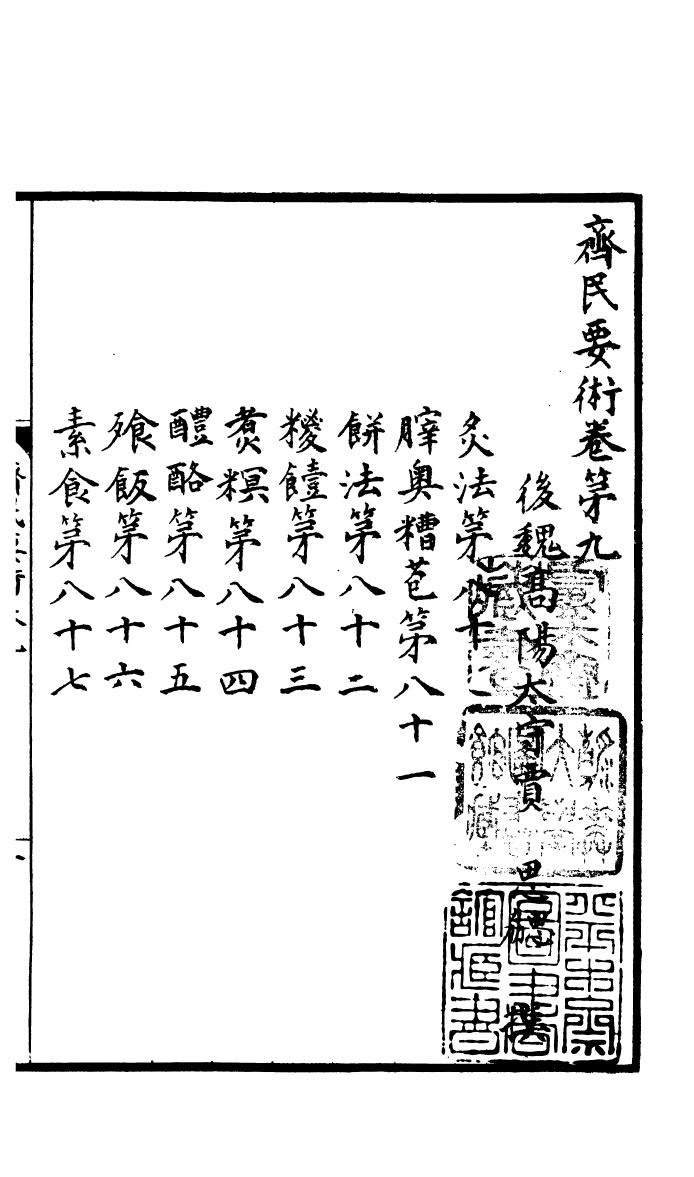 齊民要術卷第九
後魏高陽太守賈 思勰 撰
炙法第八十
䏝奧糟苞第八十一
餅法第八十二
糉䊦第八十三
煑䊫第八十四
醴酪第八十五
飱飯第八十六
素食第八十七